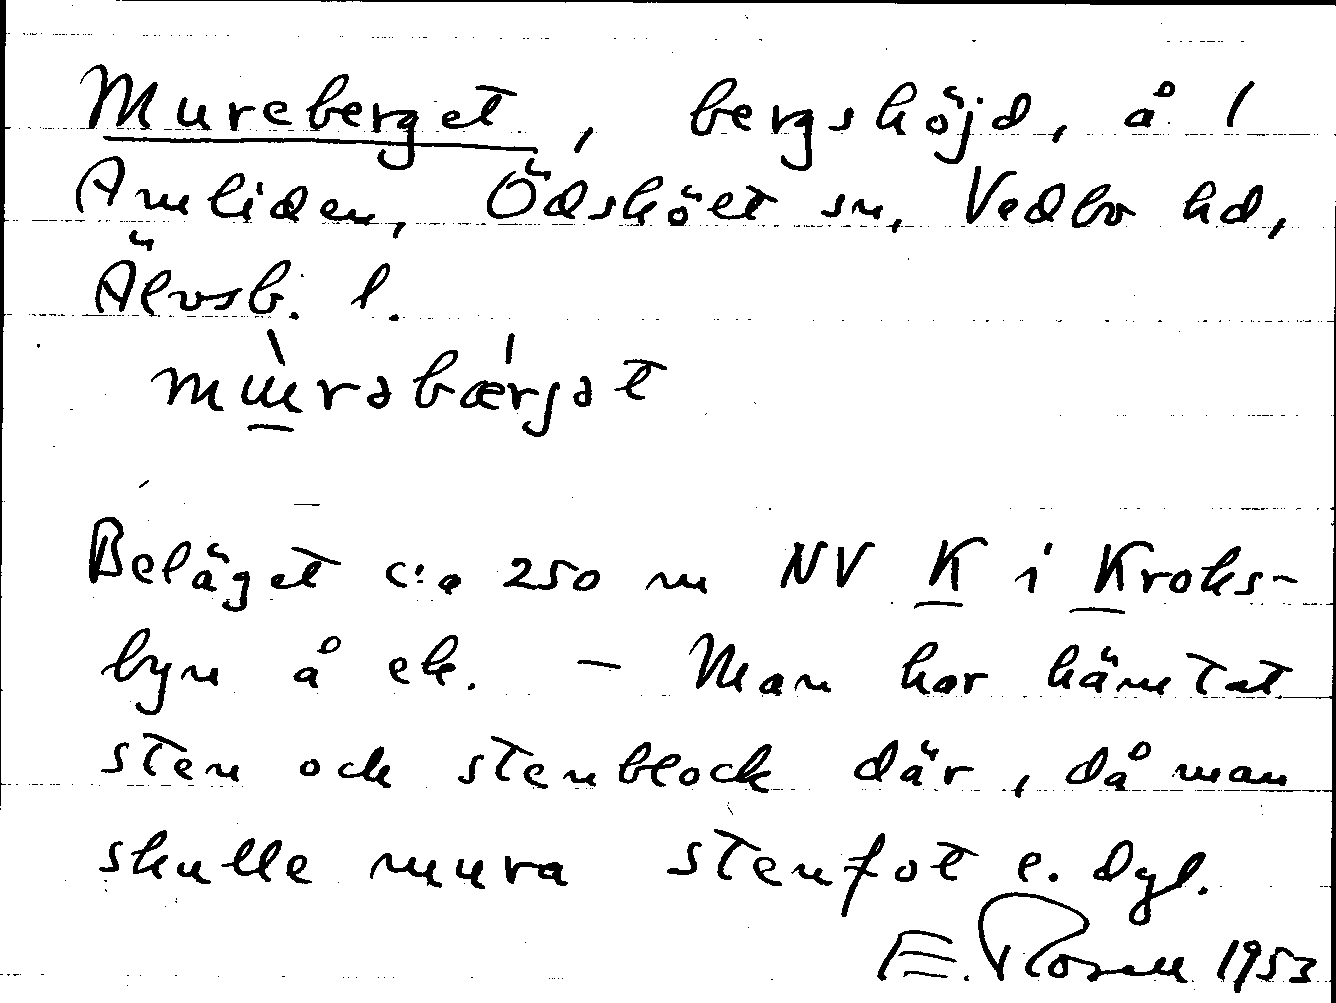 Mureberget, bergshöjd, å 1
Amliden, Ödsköelt sn, Vedbo hd,
Älvsb. l.
Beläget c:a 250 m NV K i Kroks-
byn å ek. – Man har hämtat
sten och stenblock där, då man
skulle mura stenfot e. dyl.
E. Rosell 1953